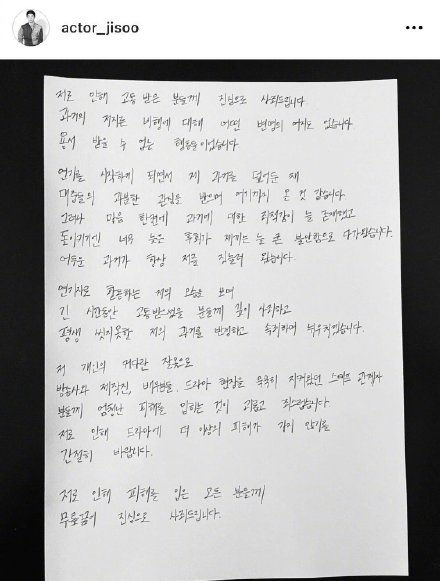 actor_jisoo
저로 인해 고통 받은 분들께 진심으로 사죄드립니다
과거에 저지른 비행에 대해 어떤 변명의 여지도 없습니다.
용서 받을 수 없는 행동들이었습니다.
연기를 시작하게 되면서 제 과거를 덮어둔 채
대중들의 과분한 관심을 받으며 여기까지 온 것 같습니다
그러나 마음 한켠에 과거에 대한 죄책감이 늘 존재했고
돌이키기엔 너무 늦은 후회가 저에게는 늘 큰 불안함으로 다가왔습니다.
어두운 과거가 항상 저를 짓눌러 왔습니다.
연기자로 활동하는 저의 모습을 보며
긴 시간동안 고통받으셨을 분들께 깊이 사죄하고
평생 씻지못할 저의 과거를 반성하고 속죄하며 뉘우치겠습니다.
저 개인의 커다란 잘못으로
방송사와 제작진, 배우들, 드라마 현장을 묵묵히 지켜왔던 스태프 관계자
분들께 엄청난 피해를 입히는 것이 괴롭고 죄스럽습니다
저로 인해 드라마에 더 이상의 피해가 가지 않기를
간절히 바랍니다.
저로 인해 피해를 입은 모든 분들께
무릎꿇어 진심으로 사죄드립니다.